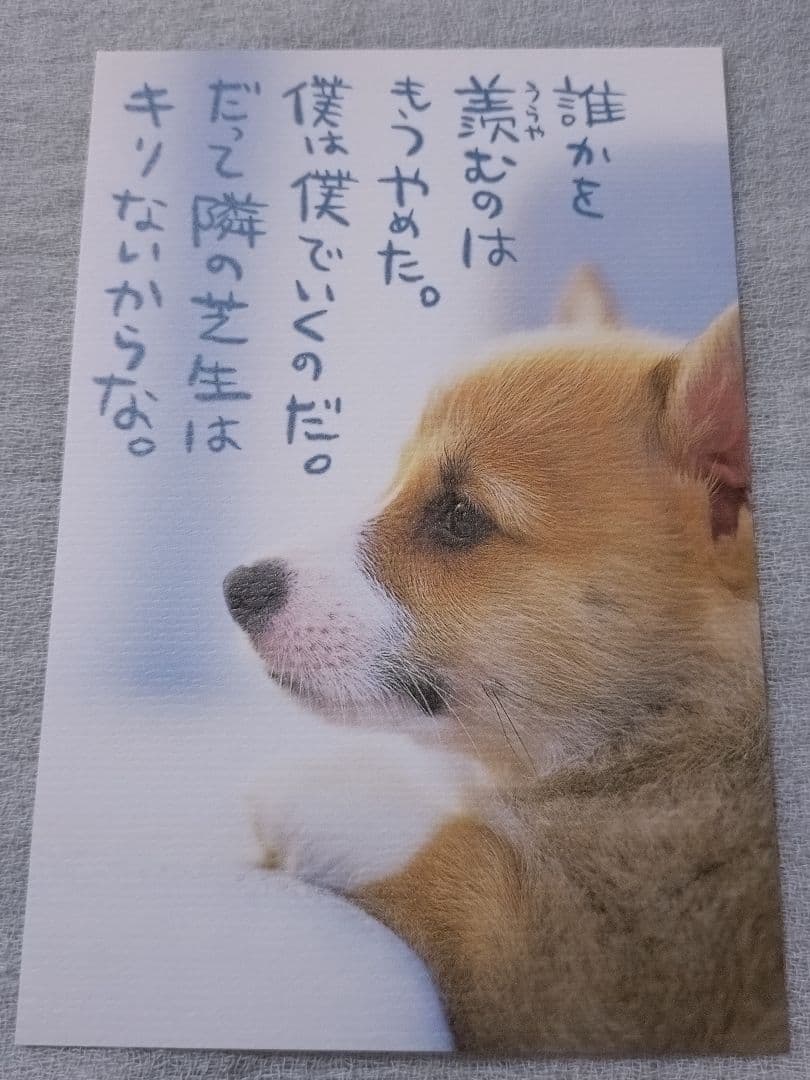 誰かを
羨むのは
うらや
もうやめた。
僕は僕でいくのだ。
だって隣の芝生は
キリないからな。